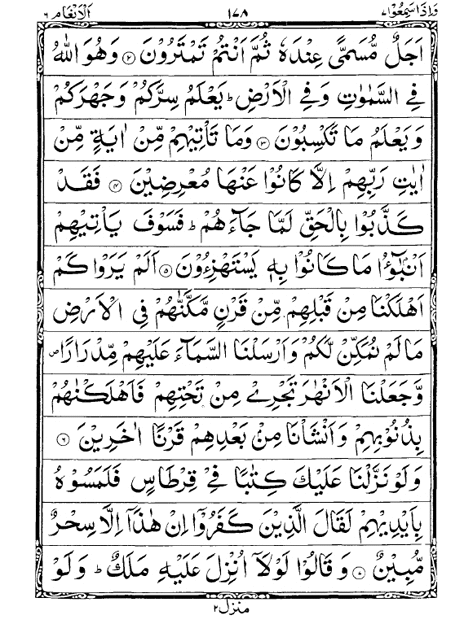 وَاِذَاسَمِعُوْا٧ ١٧٨ اَلْاَنْعَام ٦
اَجَلٌ مُّسَمًّى عِنْدَهٗ ثُمَّ اَنْتُمْ تَمْتَرُوْنَ ﴿٢﴾ وَهُوَ اللّٰهُ
فِي السَّمٰوٰتِ وَفِي الْاَرْضِ ؕ يَعْلَمُ سِرَّكُمْ وَجَهْرَكُمْ
وَيَعْلَمُ مَا تَكْسِبُوْنَ ﴿٣﴾ وَمَا تَاْتِيْهِمْ مِّنْ اٰيَةٍ مِّنْ
اٰيٰتِ رَبِّهِمْ اِلَّا كَانُوْا عَنْهَا مُعْرِضِيْنَ ﴿٤﴾ فَقَدْ
كَذَّبُوْا بِالْحَقِّ لَمَّا جَآءَهُمْ ؕ فَسَوْفَ يَاْتِيْهِمْ
اَنْۢبٰٓؤُا مَا كَانُوْا بِهٖ يَسْتَهْزِءُوْنَ ﴿٥﴾ اَلَمْ يَرَوْا كَمْ
اَهْلَكْنَا مِنْ قَبْلِهِمْ مِّنْ قَرْنٍ مَّكَّنّٰهُمْ فِي الْاَرْضِ
مَا لَمْ نُمَكِّنْ لَّكُمْ وَاَرْسَلْنَا السَّمَآءَ عَلَيْهِمْ مِّدْرَارًا ۪
وَّجَعَلْنَا الْاَنْهٰرَ تَجْرِيْ مِنْ تَحْتِهِمْ فَاَهْلَكْنٰهُمْ
بِذُنُوْبِهِمْ وَاَنْشَاْنَا مِنْۢ بَعْدِهِمْ قَرْنًا اٰخَرِيْنَ ﴿٦﴾
وَلَوْ نَزَّلْنَا عَلَيْكَ كِتٰبًا فِيْ قِرْطَاسٍ فَلَمَسُوْهُ
بِاَيْدِيْهِمْ لَقَالَ الَّذِيْنَ كَفَرُوْٓا اِنْ هٰذَآ اِلَّا سِحْرٌ
مُّبِيْنٌ ﴿٧﴾ وَقَالُوْا لَوْلَآ اُنْزِلَ عَلَيْهِ مَلَكٌ ؕ وَلَوْ
منزل ٢